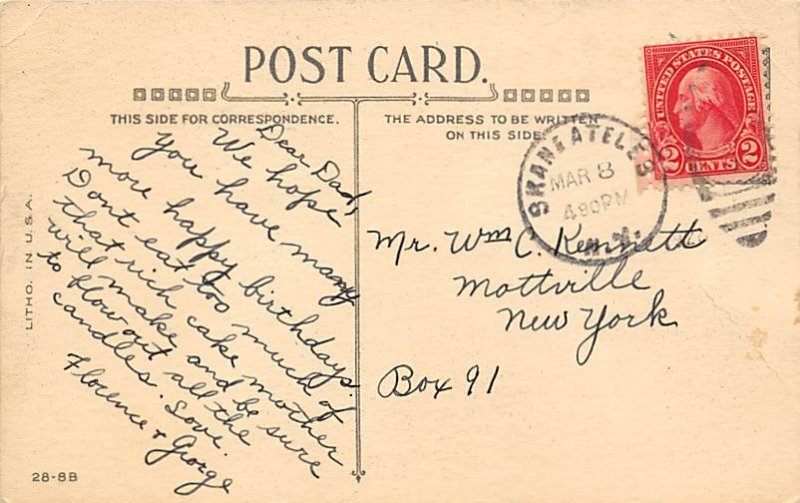 POST CARD.
THIS SIDE FOR CORRESPONDENCE.
THE ADDRESS TO BE WRITTEN
ON THIS SIDE.
UNITED STATES POSTAGE
2 CENTS 2
SKANEATELES
MAR 8
430PM
N.Y.
Dear Dad,
We hope
you have many
more happy birthdays.
Dont eat too much of
that rich cake mother
will make and be sure
to blow out all the
candles. Love.
Florence + George
Mr. Wm C. Kennett
Mottville
New York
Box 91
LITHO. IN U.S.A.
28-8B